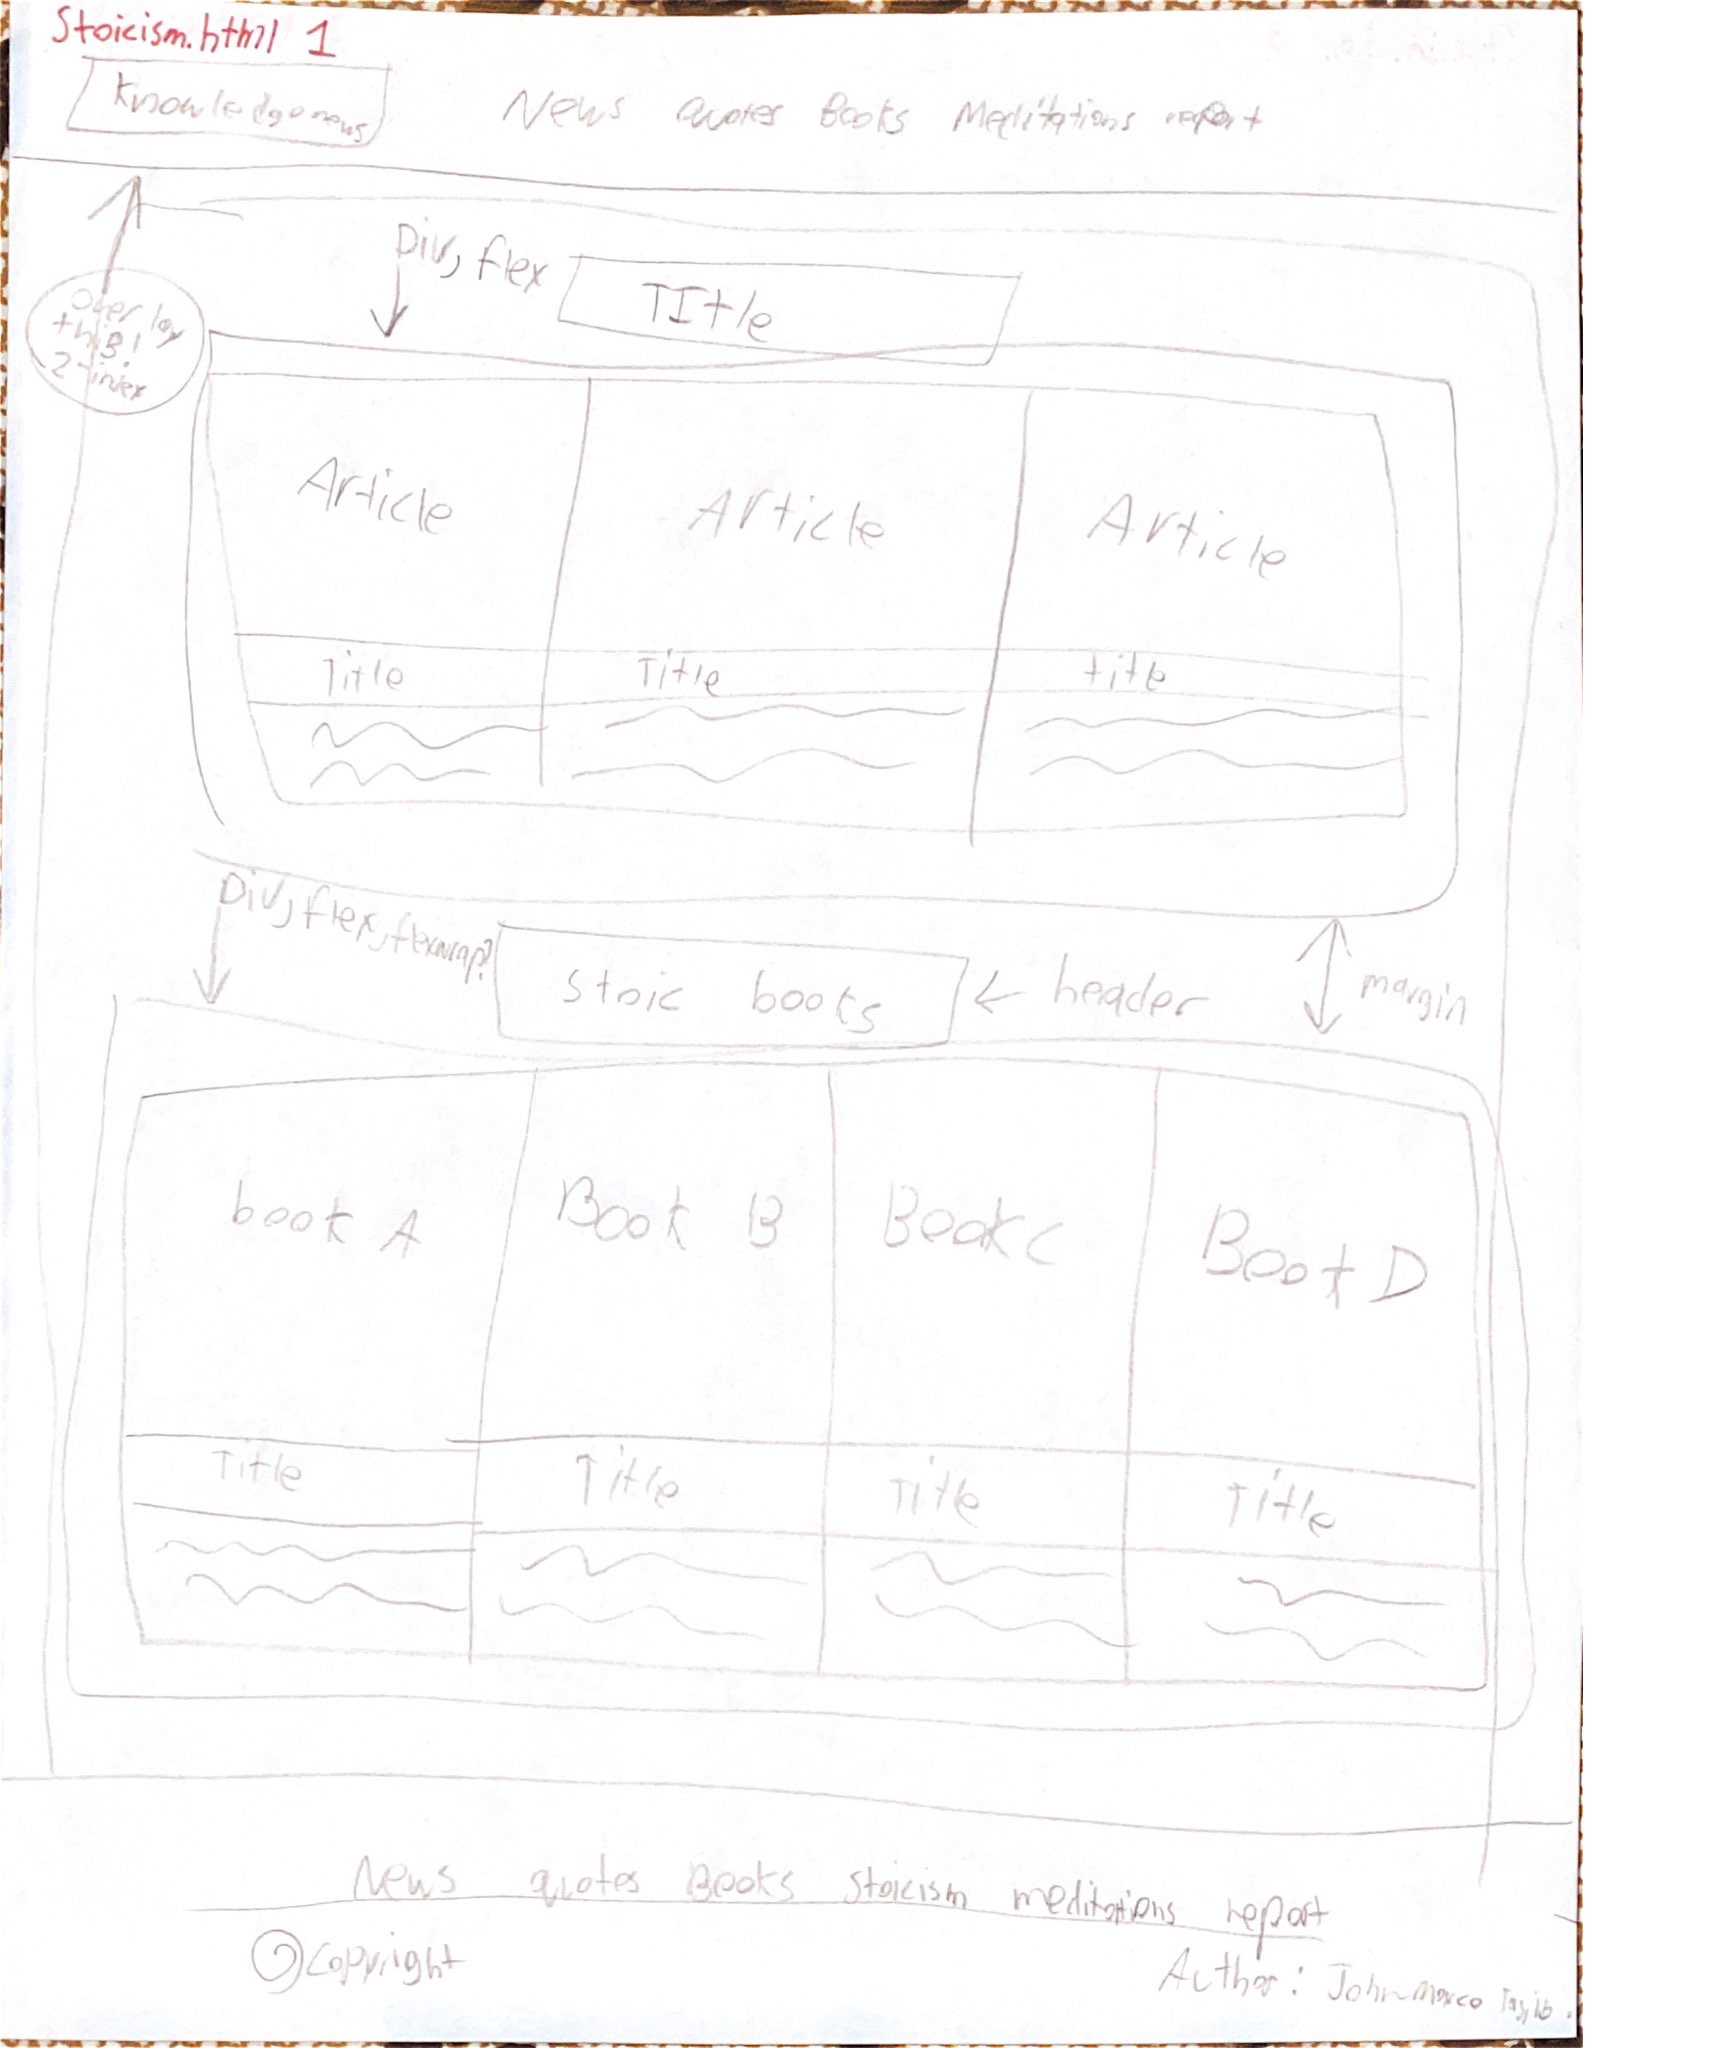 Stoicism.html 1
Knowledgenews News Quotes Books Meditations report
Div, flex
TItle
Over lay
this!
Z-index
Article Article Article
Title Title title
Div, flex, flexwrap?
Stoic books ← header
margin
book A Book B Book C Book D
Title Title Title Title
News quotes Books Stoicism meditations report
© Copyright
Author: John Marco